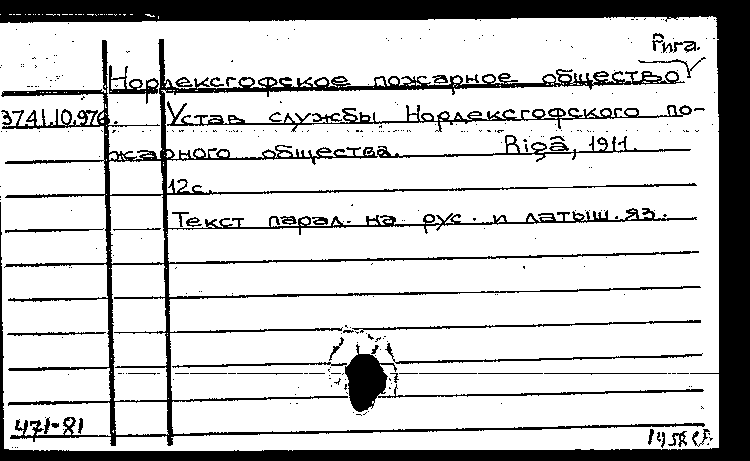 Рига.
Нордексгофское пожарное общество
37.41.10.976. Устав службы Нордексгофского по-
жарного общества. Rigā, 1911.
12с.
Текст парал. на рус. и латыш. яз.
471-81